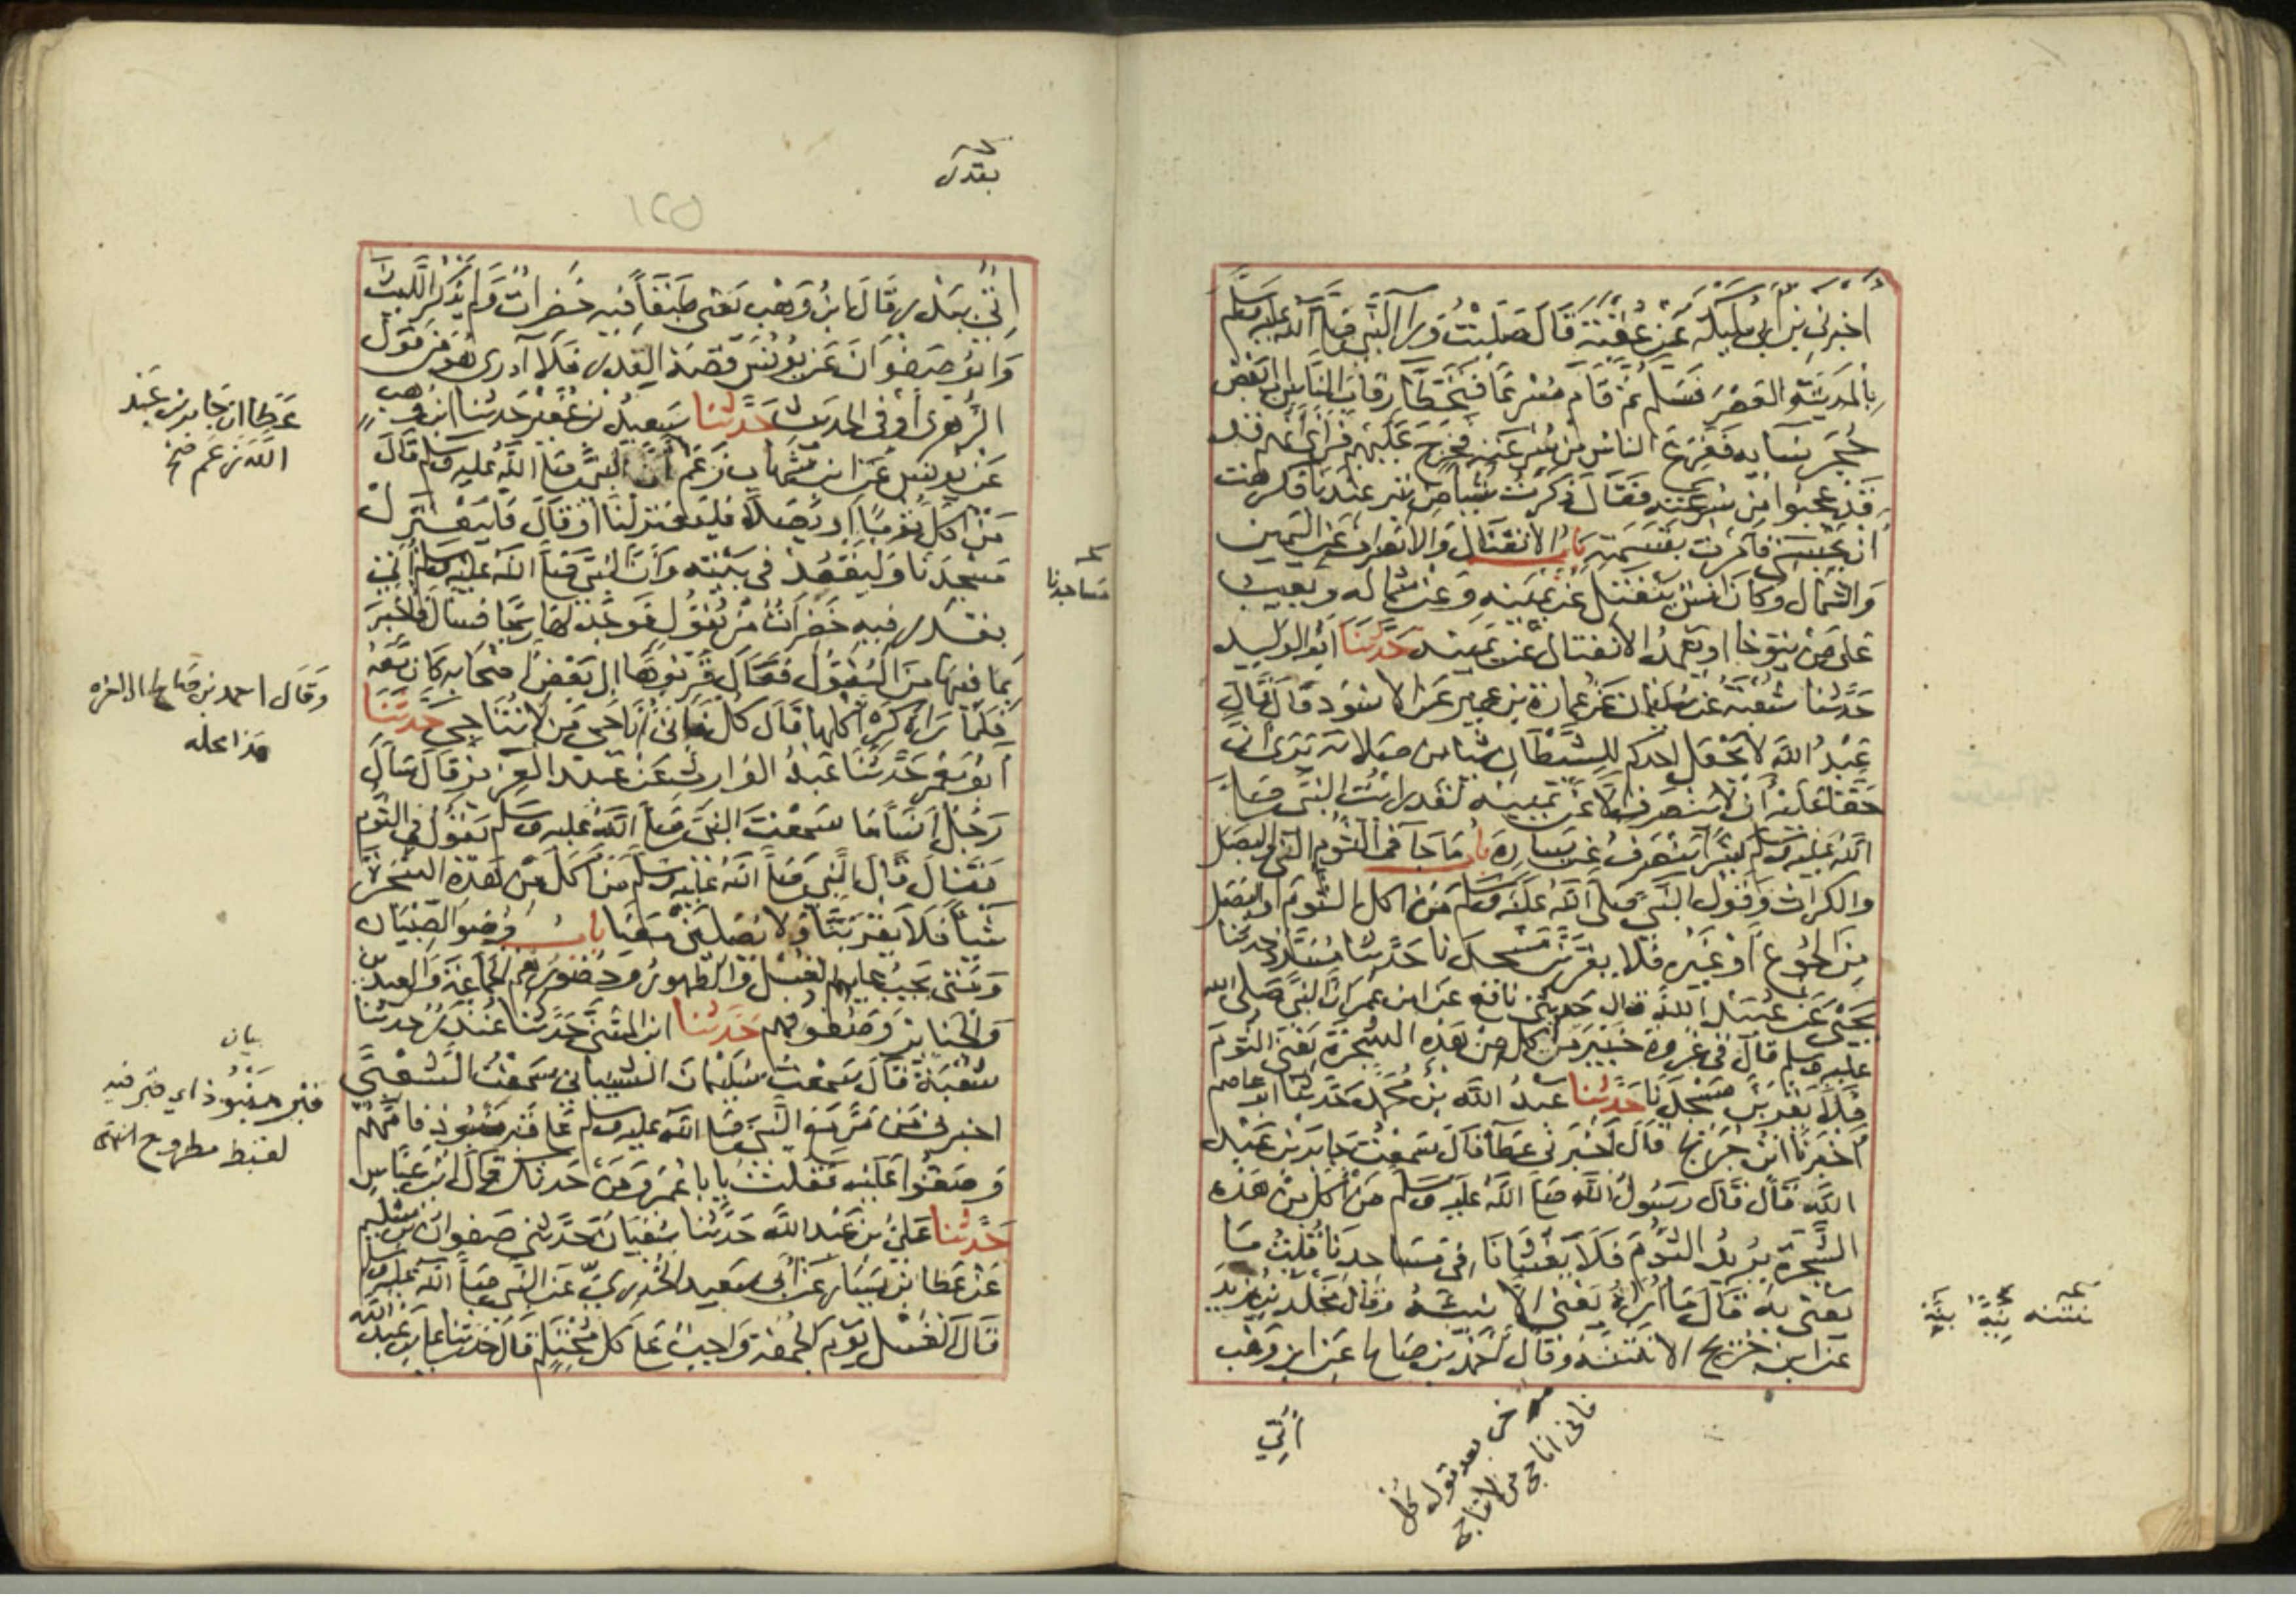 اخبرني بن ابي مليكة عن عقبة قال صليت ورآ النبي صلى الله عليه وسلم
بالمدينة العصر فسلم ثم قام مسرعا فتخطا رقاب الناس الى بعض
حجر نسايه ففزع الناس من سرعته فخرج عليهم فرأى انهم قد
قد عجبوا من سرعته فقال ذكرت شيا من تبر عندنا فكرهت
ان يحبسني فامرت بقسمته باب الانفتال والانصراف عن اليمين
والشمال وكان انس ينفتل عن يمينه وعن شماله ويعيب
على من يتوخا او يعمد الانفتال عن يمينه حدثنا ابو الوليد
حدثنا شعبة عن سليمان عن عمارة بن عمير عن الاسود قال قال
عبد الله لا يجعل احدكم للشيطان شيا من صلاته يرى ان
حقا عليه ان لا ينصرف الا عن يمينه لقد رايت النبي صلى
الله عليه وسلم كثيرا ينصرف عن يساره باب ما جا في الثوم الني والبصل
والكراث وقول النبي صلى الله عليه وسلم من اكل الثوم او البصل
من الجوع او غيره فلا يقربن مسجدنا حدثنا مسدد حدثنا
يحيى عن عبيد الله قال حدثني نافع عن ابن عمر ان النبي صلى الله
عليه وسلم قال في غزوة خيبر من اكل من هذه الشجرة يعني الثوم
فلا يقربن مسجدنا حدثنا عبد الله بن محمد حدثنا ابو عاصم
اخبرنا ابن جريج قال اخبرني عطآ قال سمعت جابر بن عبد
الله قال قال رسول الله صلى الله عليه وسلم من اكل من هذه
الشجرة يريد الثوم فلا يغشانا في مساجدنا قلت ما
يعني به قال ما اراه يعني الا نيئه وقال مخلد بن يزيد
عن ابن جريج الا نتنه وقال احمد بن صالح عن ابن وهب
نتنه نيه
أتي
بعد قول كل
فاني اناجي من لا تناجي
بقدر
اتي ببدر قال ابن وهب يعني طبقا فيه خضرات ولم يذكر الليث
وابو صفوان عن يونس قصة القدر فلا ادري هو من قول
الزهري او في الحديث حدثنا سعيد بن عفير حدثنا ابن وهب
عن يونس عن ابن شهاب زعم ان النبي صلى الله عليه وسلم قال
من اكل ثوما او بصلا فليعتزلنا او قال فليعتزل
مسجدنا وليقعد في بيته وان النبي صلى الله عليه وسلم اتي
بقدر فيه خضرات من بقول فوجد لها ريحا فسال فاخبر
بما فيها من البقول فقال قربوها الى بعض اصحابه كان معه
فلما رآه كره اكلها قال كل فاني اناجي من لا تناجي حدثنا
ابو معمر حدثنا عبد الوارث عن عبد العزيز قال سال
رجل انسا ما سمعت النبي صلى الله عليه وسلم يقول في الثوم
فقال قال النبي صلى الله عليه وسلم من اكل من هذه الشجرة
شيا فلا يقربنا ولا يصلين معنا باب وضو الصبيان
ومتى يجب عليهم الغسل والطهور وحضورهم الجماعة والعيدين
والجنايز وصفوفهم حدثنا ابن المثنى حدثنا غندر حدثنا
شعبة قال سمعت سليمان الشيباني سمعت الشعبي
اخبرني من مر مع النبي صلى الله عليه وسلم على قبر منبوذ فامهم
وصفوا عليه فقلت يا با عمرو من حدثك قال ابن عباس
حدثنا علي بن عبد الله حدثنا سفيان حدثني صفوان بن سليم
عن عطا بن يسار عن ابي سعيد الخدري عن النبي صلى الله عليه وسلم
قال الغسل يوم الجمعة واجب على كل محتلم قال حدثنا علي بن عبد الله
مساجدنا
عطا ان جابر بن عبد
الله زعم صح
وقال احمد بن صالح الى اخره
هذا محله
بيان
قبر منبوذ اي قبر فيه
لقيط مطروح انتهى